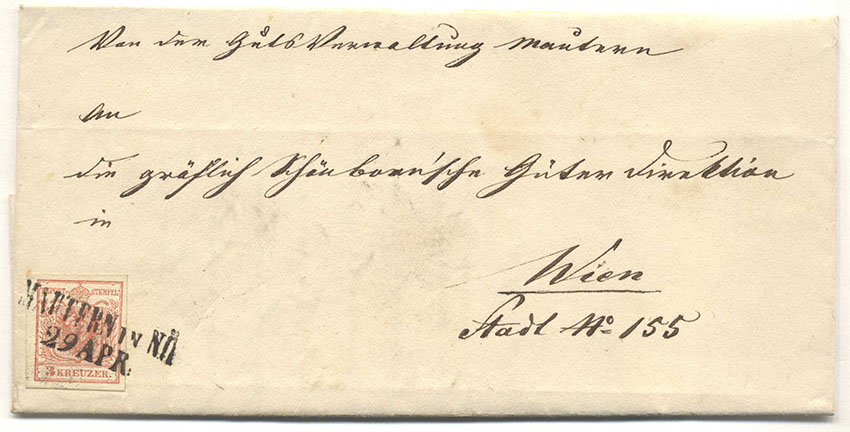 Von der Güts Verwaltung Mautern
An
die gräflich Schönborn'sche Güter Direktion
in
Wien
Stadt No 155
POST STEMPEL
MAUTERN IN NÖ
29 APR.
3 KREUZER.